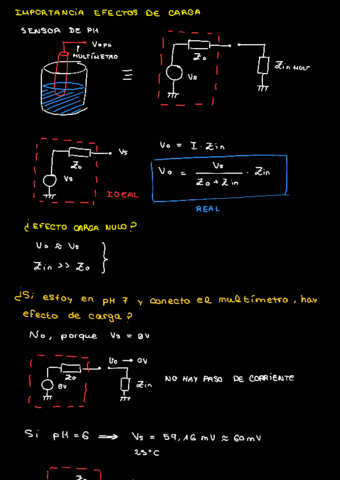 IMPORTANCIA EFECTOS DE CARGA
SENSOR DE PH
VOPH
MULTÍMETRO
≡
Zo
Vs
Zin MULT.
Zo
Vs
Vs
IDEAL
Vo = I · Zin
Vo = Vs / (Zo + Zin) · Zin
REAL
¿EFECTO CARGA NULO?
Vo ≈ Vs
Zin >> Zo
¿Si estoy en pH 7 y conecto el multímetro, hay
efecto de carga?
No, porque Vs = 0V
Vo → 0V
Zo
0V
Zin
NO HAY PASO DE CORRIENTE
Si pH = 6 → Vs = 59,16 mV ≈ 60mV
25°C
Zo